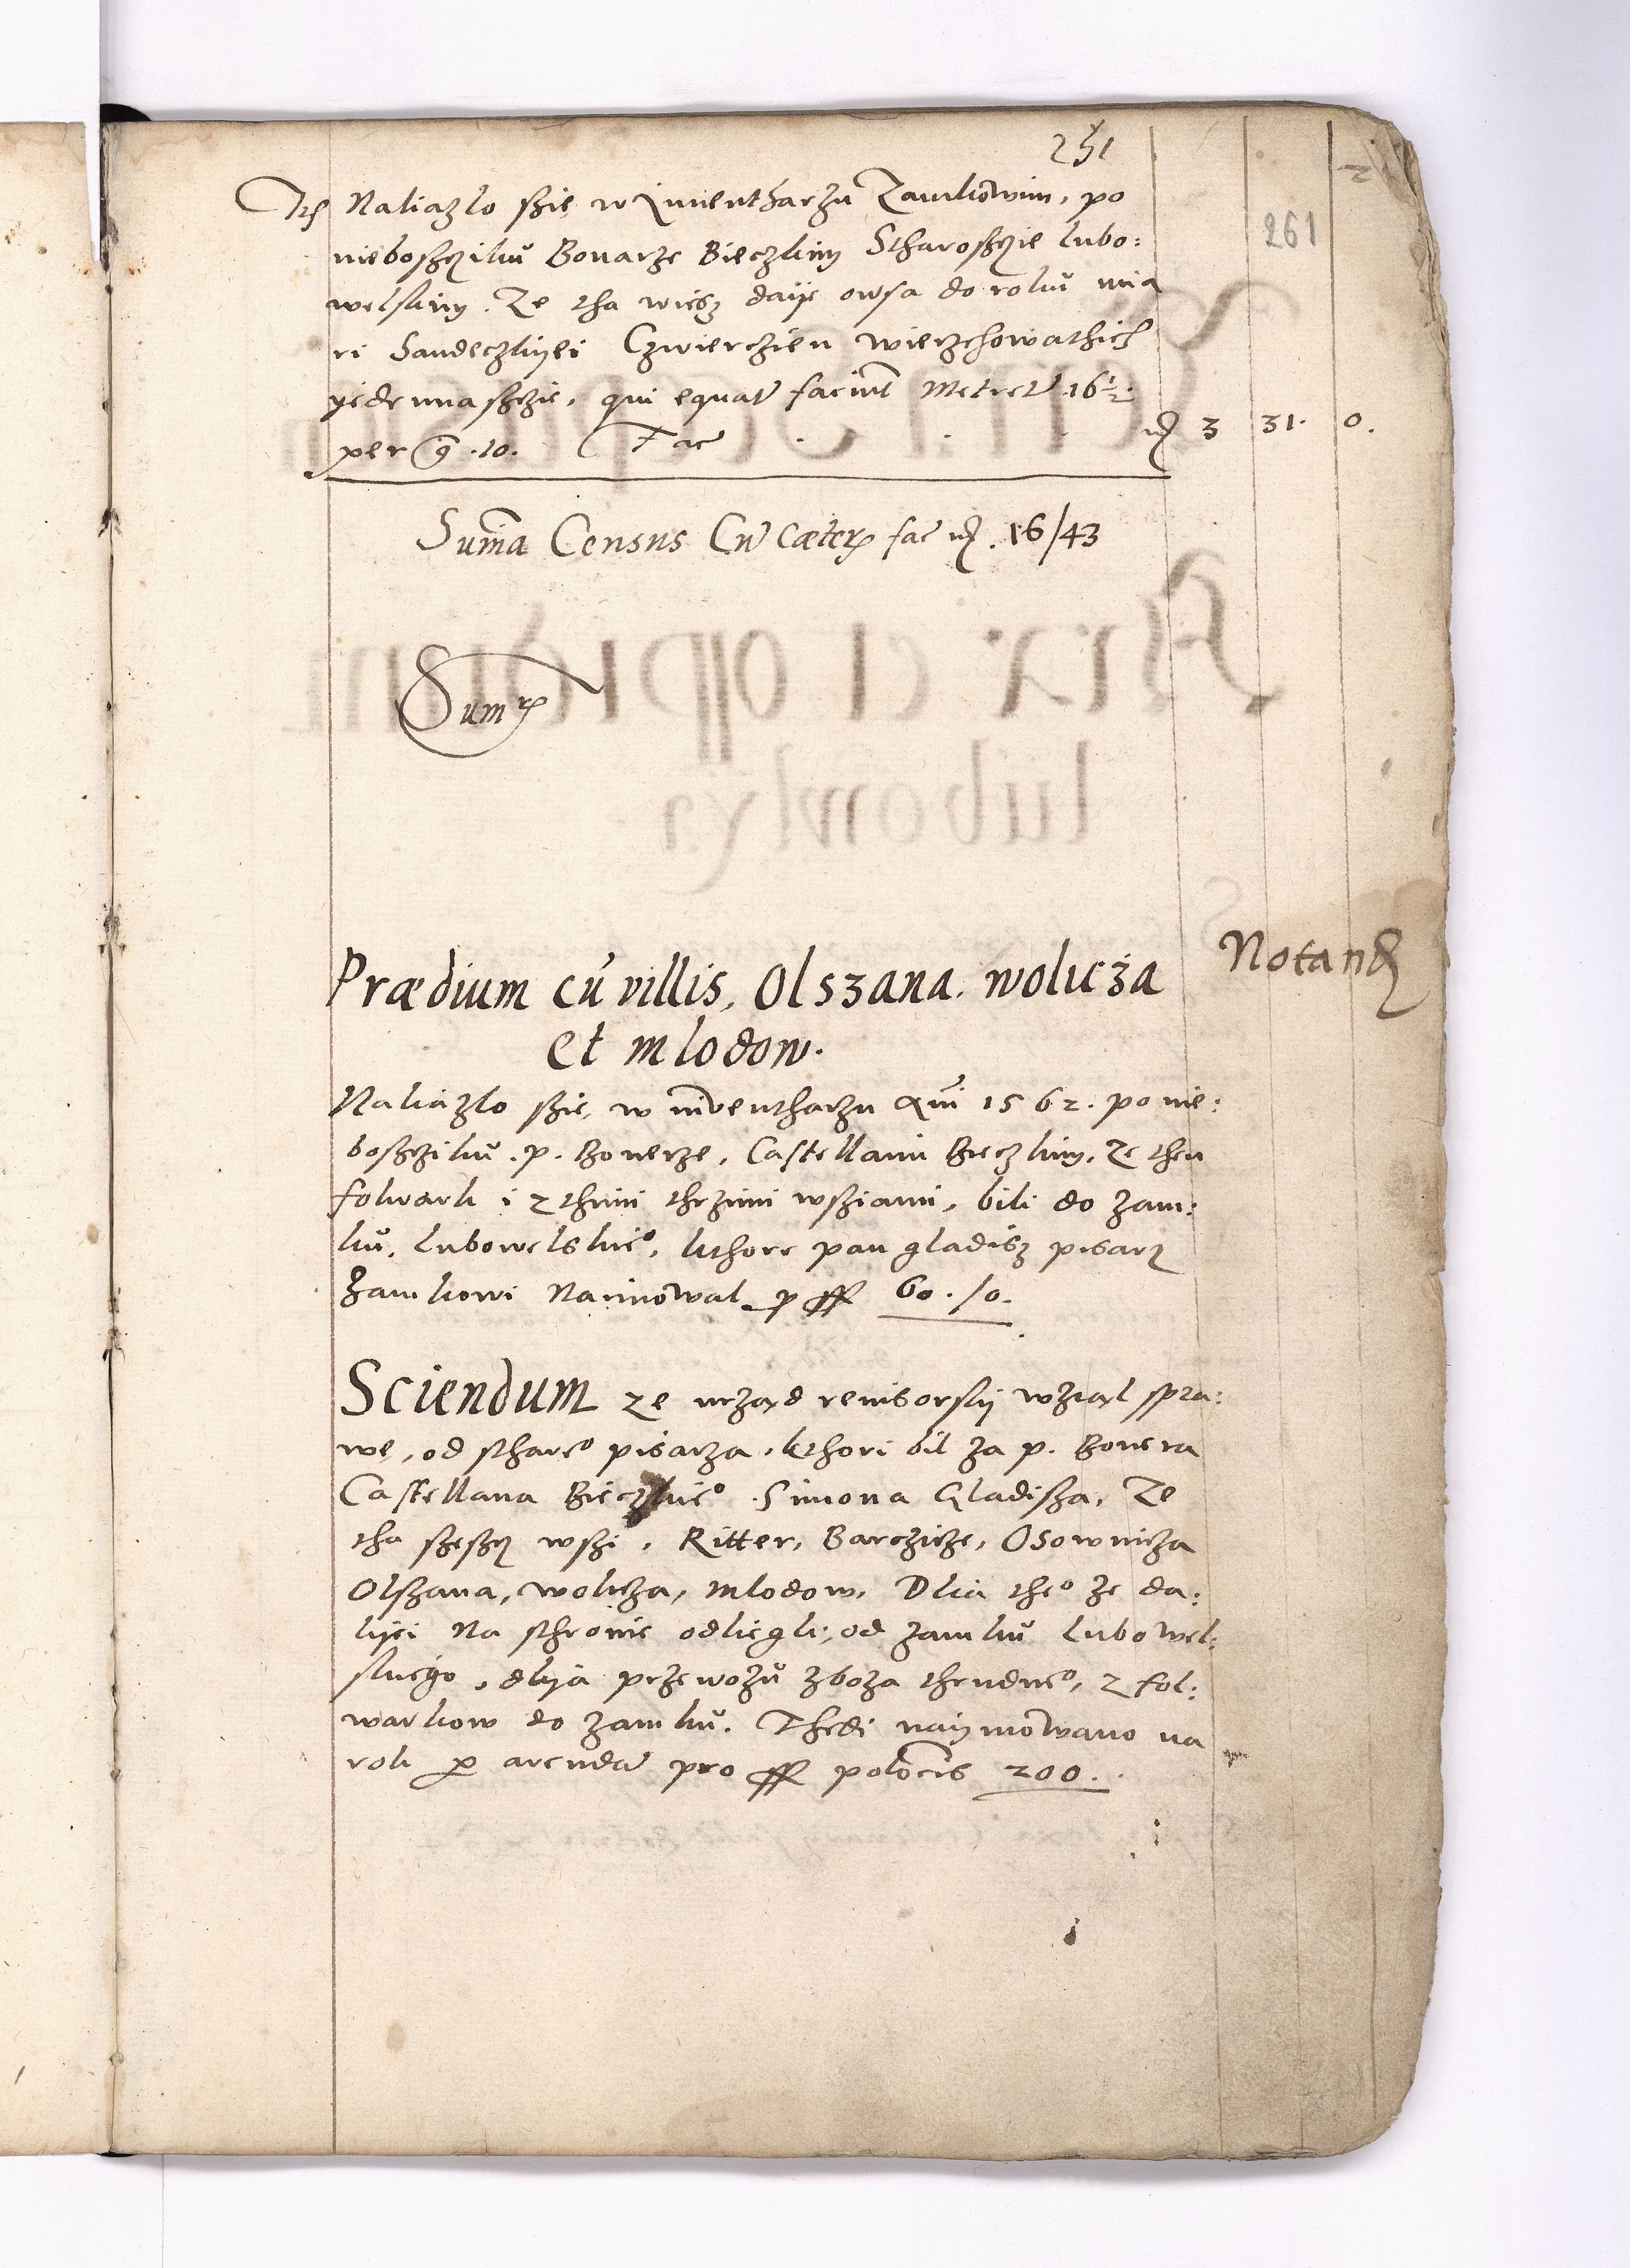 251
261
Naliazlo szie w Inuentharzu Zamkowim, po
nieboszcziku Bonarze Bieczkim Stharoszczie lubo:
welskim. Ze tha wiesz daije owsa do roku mia
ri Sandeczkyei Czwierczien wierzchowathich
yedennasczie, qui equat faciut Metret 16½.
per g .10. Fac 3 31. 0.
Suma Census Cu cæter fac 16/43
Sum
Prædium cu villis, Olszana. wolicza
Notand
et mlodow.
Naliazlo szie, w inventharzu Ani 1562. po nie:
boszcziku. p. Bonerze, Castellanu Bieczkim, Ze then
folwark i z thimi trzimi wsziami, bili do zam:
ku, Lubowelskieo, kthore pan gladisz pisarz
Zamkowi Naimowal p ff 60./0.
Sciendum ze urzad reuisorskij wzial spra:
we, od sthareo pisarza, kthori bil za p. Bonera
Castellana Bieczkieo Simona Gladisza, Ze
tha szescz wszi, Ritter, Barczicze, Osownicza
Olszana, wolicza, mlodow, Dlia theo ze da:
lijei Na sthronie odliegli, od zamku Lubowel:
skiego, dlija przewozu zboza thrudneo, z fol:
warkow do zamku. Thedi naijmowano na
rok p arenda pro ff polocis 200.